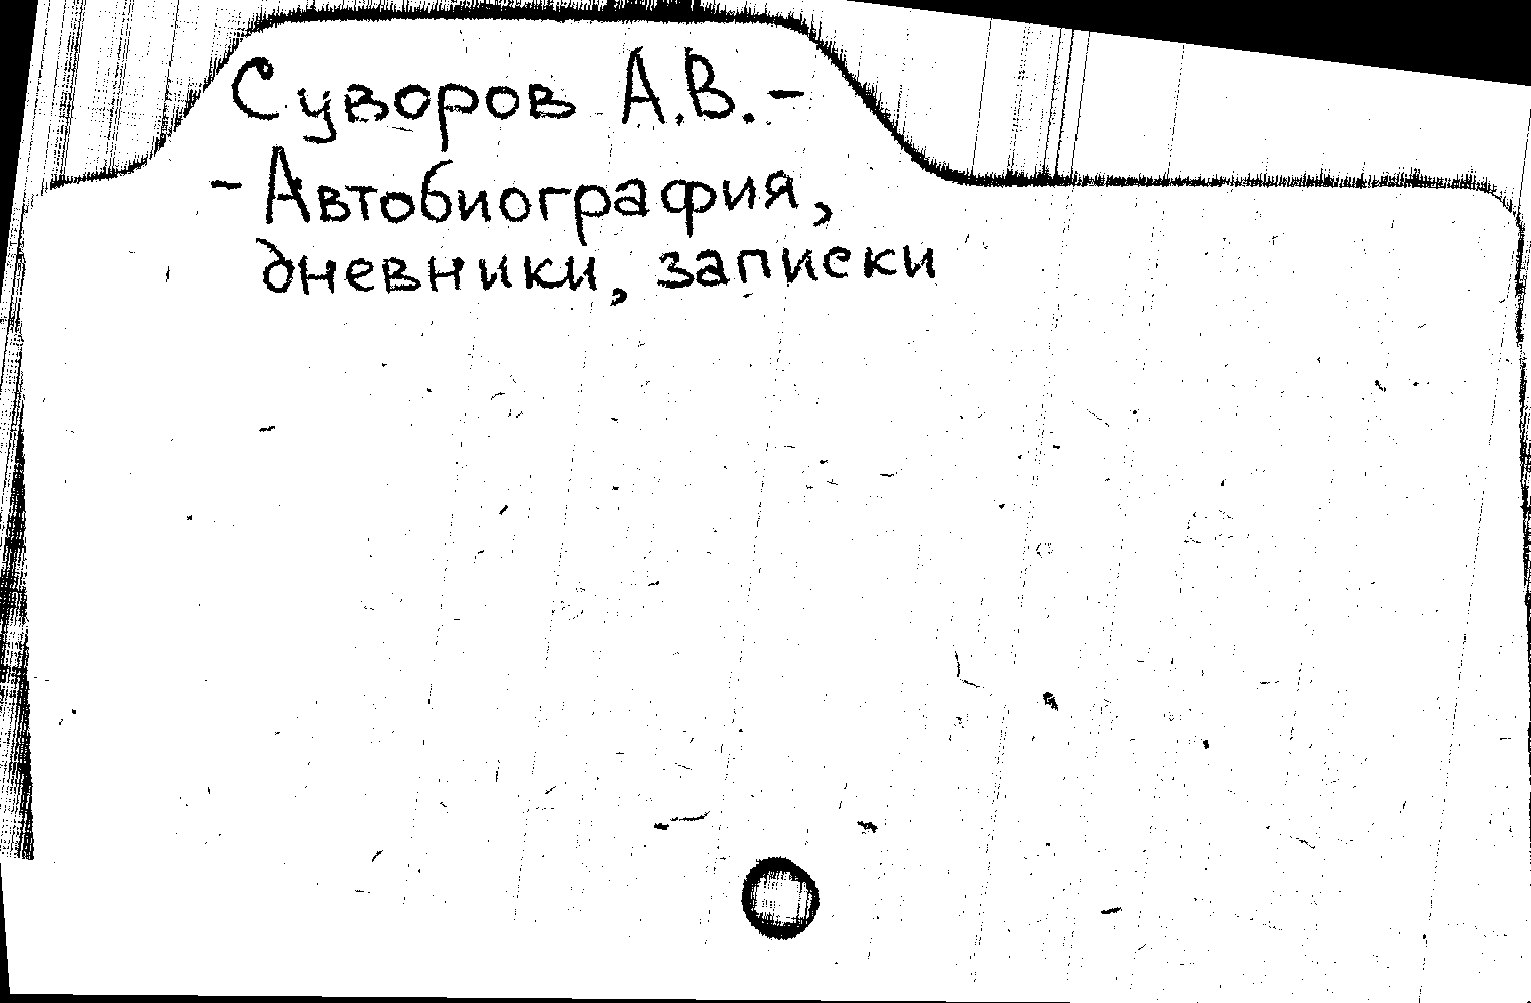 Суворов А.В. -
- Автобиография,
дневники, записки